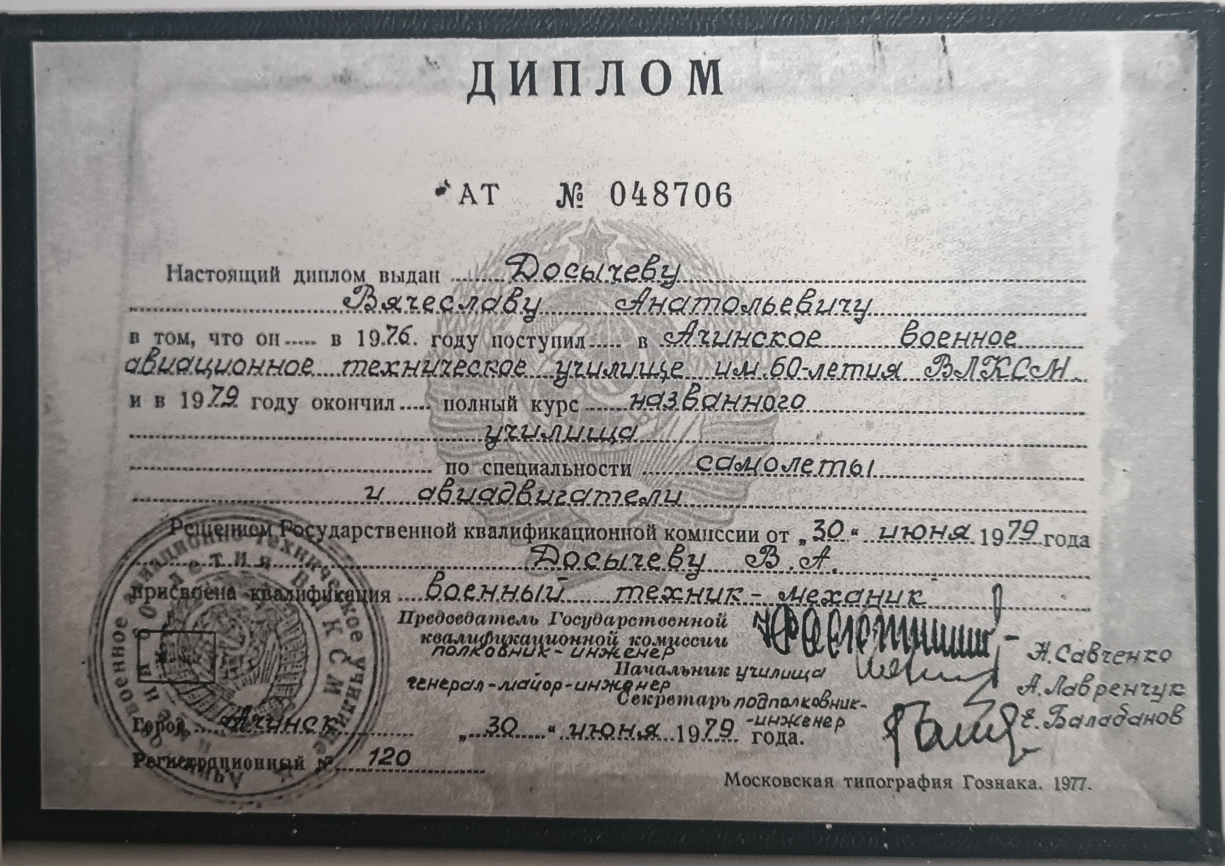 ДИПЛОМ
АТ № 048706
Настоящий диплом выдан Досычеву
Вячеславу Анатольевичу
в том, что он в 1976 году поступил в Ачинское военное
авиационное техническое училище им. 60-летия ВЛКСМ
и в 1979 году окончил полный курс названного
училища
по специальности самолеты
и авиадвигатели
Решением Государственной квалификационной комиссии от „30“ июня 1979 года
Досычеву В. А.
присвоена квалификация военный техник-механик
Председатель Государственной
квалификационной комиссии
полковник-инженер Н. Савченко
Начальник училища
генерал-майор-инженер А. Лавренчук
Секретарь подполковник-
-инженер Е. Балабанов
Город Ачинск „30“ июня 1979 года.
Регистрационный № 120
Московская типография Гознака. 1977.